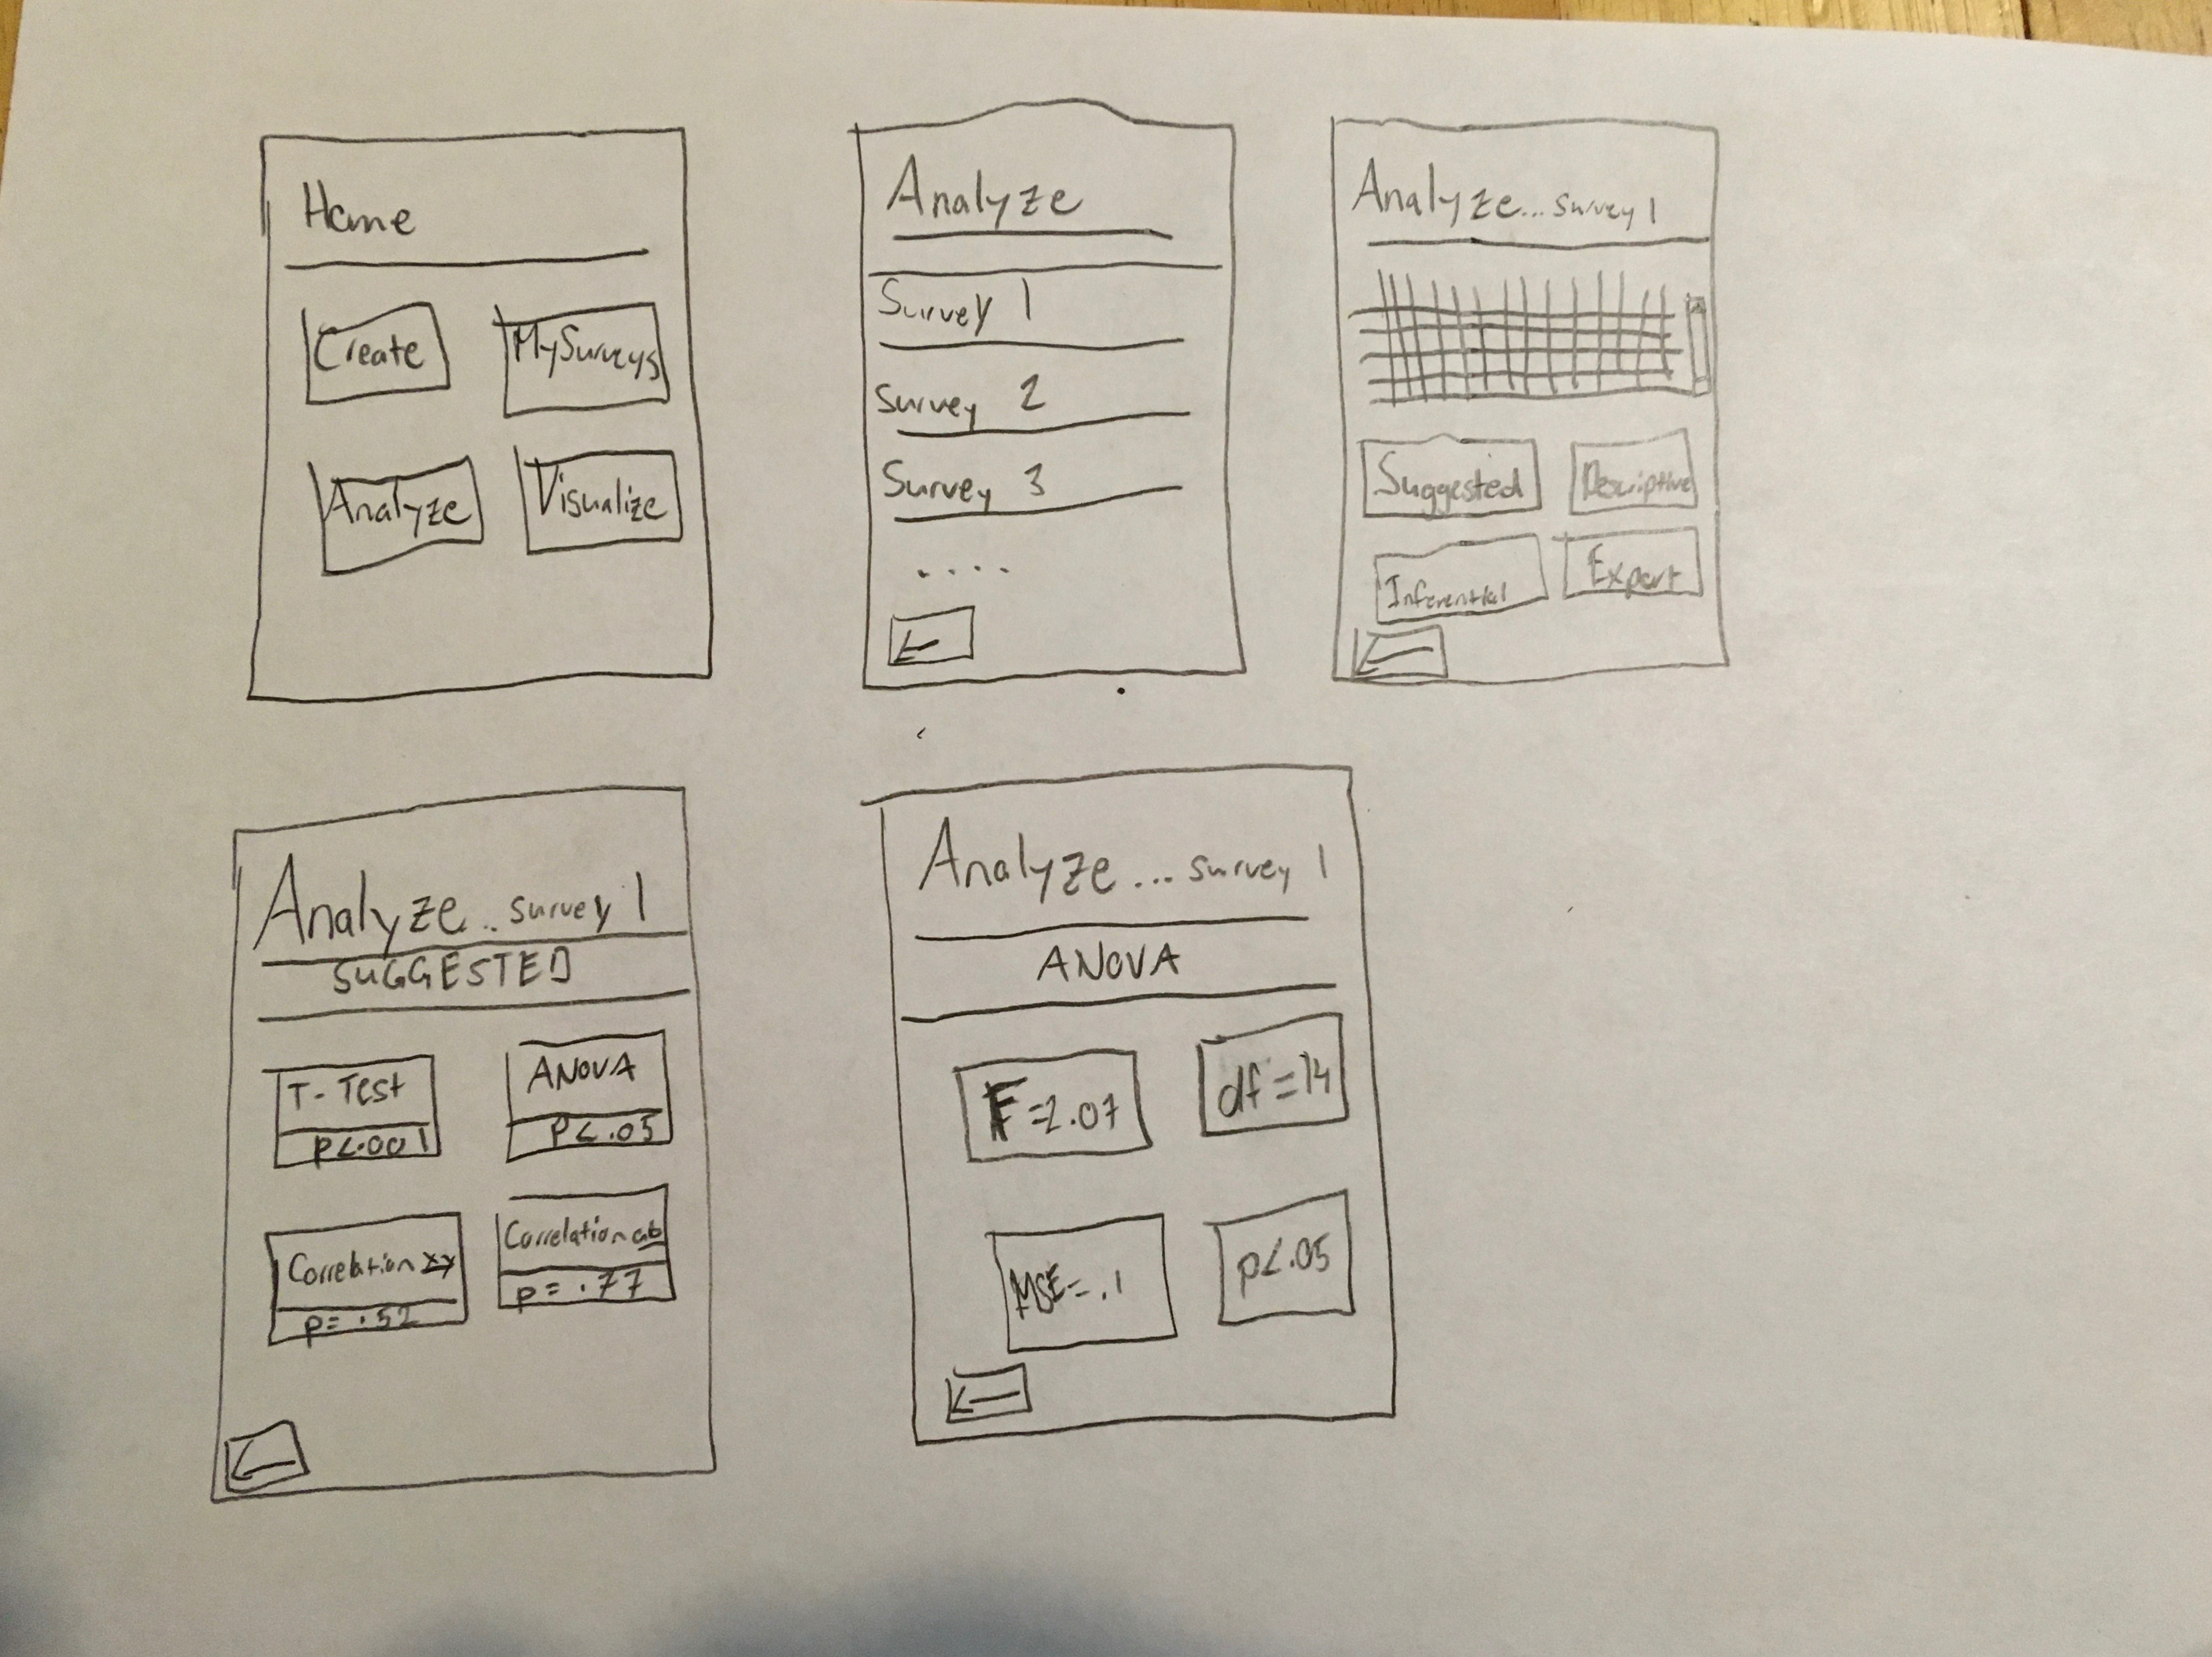 Home
Create
MySurveys
Analyze
Visualize
Analyze
Survey 1
Survey 2
Survey 3
....
Analyze... Survey 1
Suggested
Descriptive
Inferential
Export
Analyze.. survey 1
SUGGESTED
T-Test
p<.001
ANOVA
p<.05
Correlation xy
p= .52
Correlation ab
p= .77
Analyze... survey 1
ANOVA
F=2.07
df=14
MSE=.1
p<.05